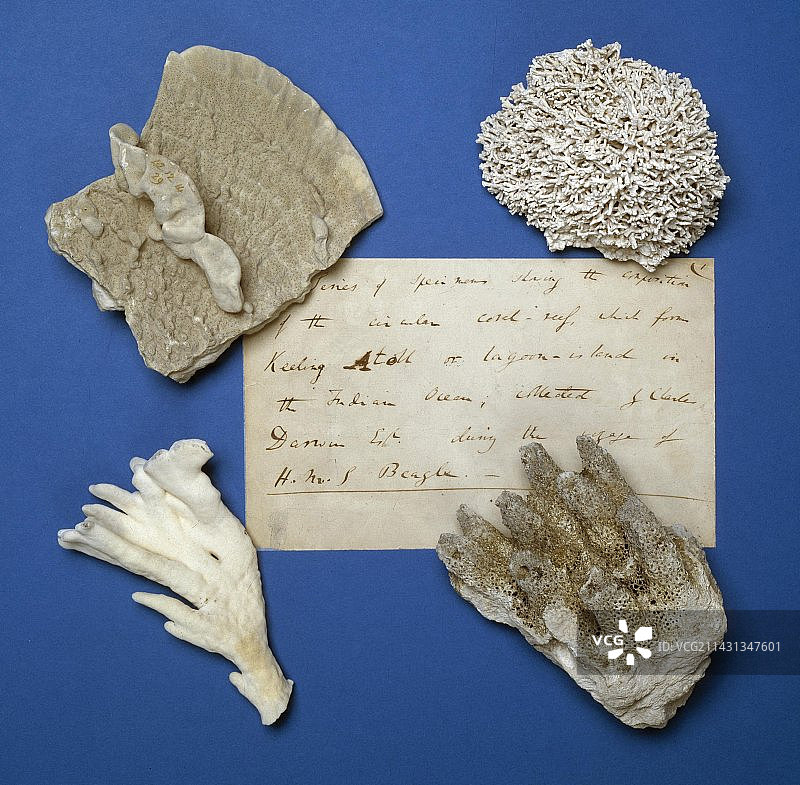 Series of specimens showing the composition
of the circular coral-reefs, which form
Keeling Atoll or lagoon-island in
the Indian Ocean; collected by Charles
Darwin Esq. during the voyage of
H.M.S Beagle. —
VCG
ID:VCG211431347601